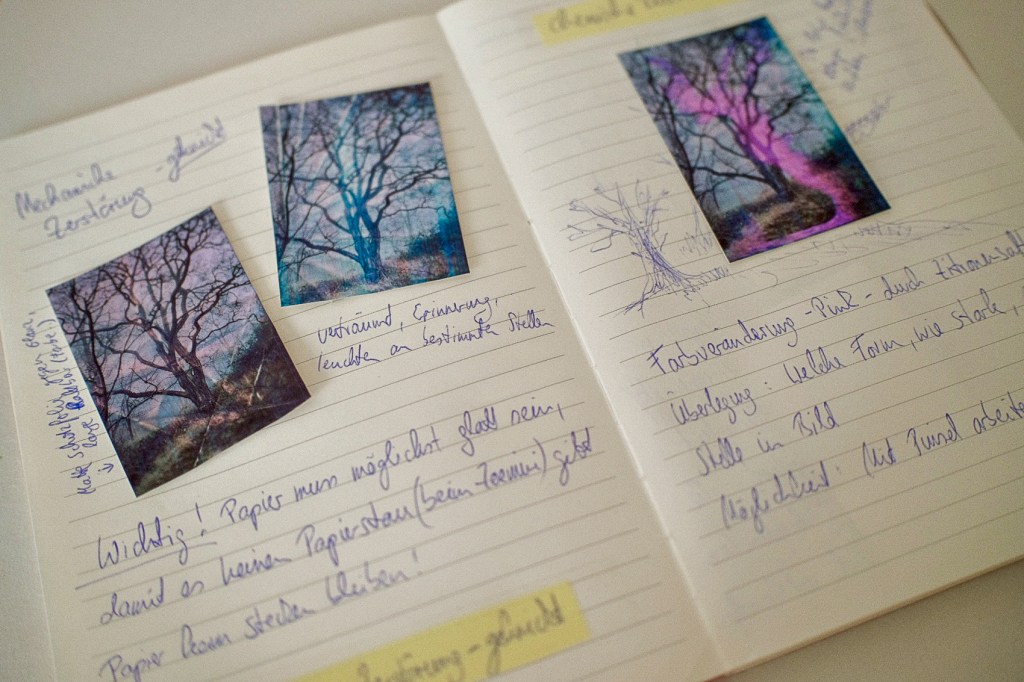 Mechanische
Zerstörung - geknickt
verträumt, Erinnerung,
leuchten an bestimmten Stellen
Matte Schutzfolie
Wichtig! Papier muss möglichst glatt sein,
damit es keinen Papierstau (beim Zoemini) gibt
Papier kann stecken bleiben!
Zerstörung - geknickt
chemische
Farbveränderung - Pink - durch Zitronensaft
Überlegung: Welche Form, wie stark,
Stelle im Bild
Möglichkeit: (Mit Pinsel arbeiten